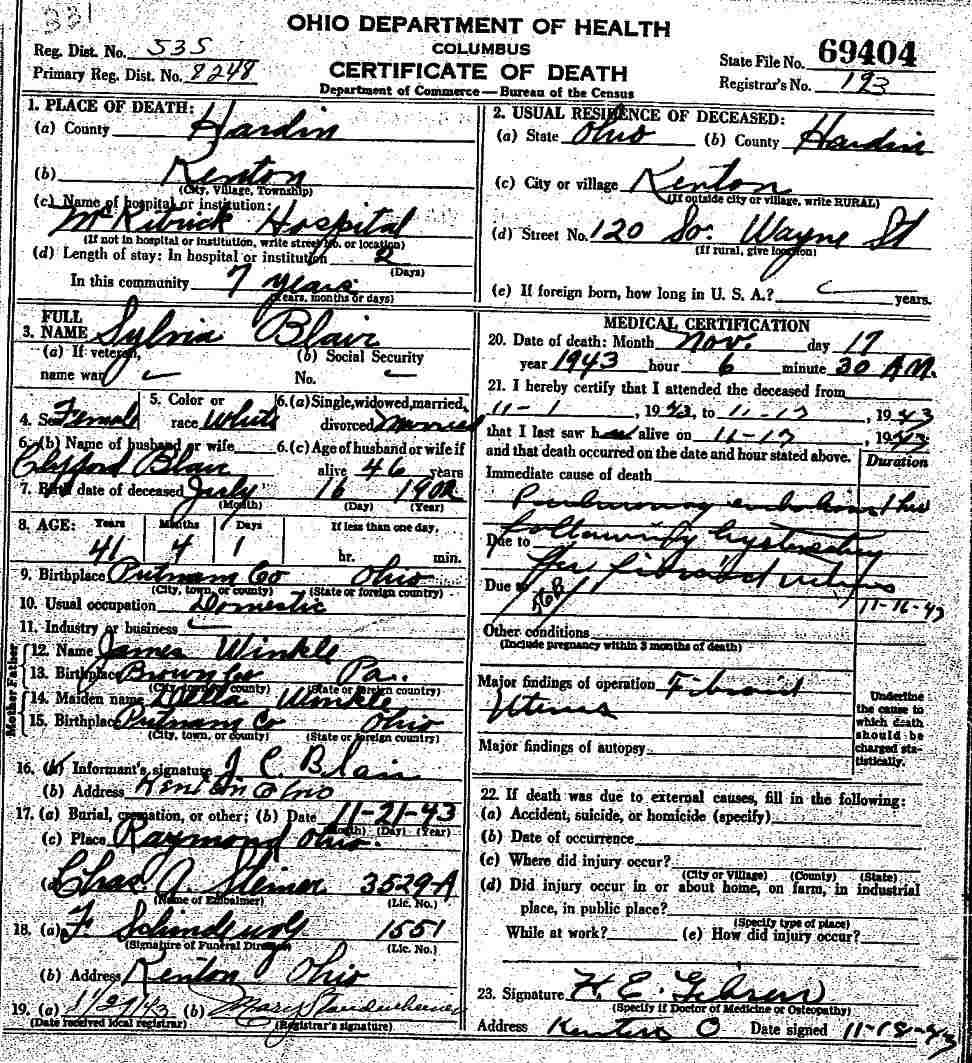 331
OHIO DEPARTMENT OF HEALTH
COLUMBUS
CERTIFICATE OF DEATH
Department of Commerce — Bureau of the Census
Reg. Dist. No. 535
Primary Reg. Dist. No. 8248
State File No. 69404
Registrar's No. 193
1. PLACE OF DEATH:
(a) County Hardin
(b) Kenton
(City, Village, Township)
(c) Name of hospital or institution:
McKitrick Hospital
(If not in hospital or institution, write street No. or location)
(d) Length of stay: In hospital or institution 2
(Days)
In this community 7 years
(Years, months or days)
2. USUAL RESIDENCE OF DECEASED:
(a) State Ohio (b) County Hardin
(c) City or village Kenton
(If outside city or village, write RURAL)
(d) Street No. 120 So. Wayne St
(If rural, give location)
(e) If foreign born, how long in U. S. A.? years.
3. FULL NAME Sylvia Blair
(a) If veteran, name war
(b) Social Security No.
4. Sex Female 5. Color or race White 6. (a) Single, widowed, married, divorced Married
6. (b) Name of husband or wife Clyfford Blair 6. (c) Age of husband or wife if alive 46 years
7. Birth date of deceased July 16 1902
(Month) (Day) (Year)
8. AGE: Years Months Days If less than one day,
41 4 1 hr. min.
9. Birthplace Putnam Co Ohio
(City, town, or county) (State or foreign country)
10. Usual occupation Domestic
11. Industry or business
Father
12. Name James Winkle
13. Birthplace Brown Co Pa.
(City, town, or county) (State or foreign country)
Mother
14. Maiden name Della Winkle
15. Birthplace Putnam Co Ohio
(City, town, or county) (State or foreign country)
16. (a) Informant's signature J C Blair
(b) Address Kenton Ohio
17. (a) Burial, cremation, or other: (b) Date 11-21-43
(Month) (Day) (Year)
(c) Place Raymond Ohio.
(d) Chas. A. Steiner 3529-A
(Name of Embalmer) (Lic. No.)
18. (a) F. 1551
(Signature of Funeral Director) (Lic. No.)
(b) Address Kenton Ohio
19. (a) (b) Mary
(Date received local registrar) (Registrar's signature)
MEDICAL CERTIFICATION
20. Date of death: Month Nov. day 17
year 1943 hour 6 minute 30 AM.
21. I hereby certify that I attended the deceased from
11-1, 1943, to 11-17, 1943
that I last saw her alive on 11-17, 1943
and that death occurred on the date and hour stated above.
Duration
Immediate cause of death
Pulmonary embolism
Due to following hysterectomy
Due to for fibroid uterus
11-16-43
Other conditions
(Include pregnancy within 3 months of death)
Major findings of operation Fibroid
Uterus
Major findings of autopsy
Underline the cause to which death should be charged statistically.
22. If death was due to external causes, fill in the following:
(a) Accident, suicide, or homicide (specify)
(b) Date of occurrence
(c) Where did injury occur?
(City or Village) (County) (State)
(d) Did injury occur in or about home, on farm, in industrial
place, in public place?
(Specify type of place)
While at work? (e) How did injury occur?
23. Signature H. E.
(Specify if Doctor of Medicine or Osteopathy)
Address Kenton O Date signed 11-18-43